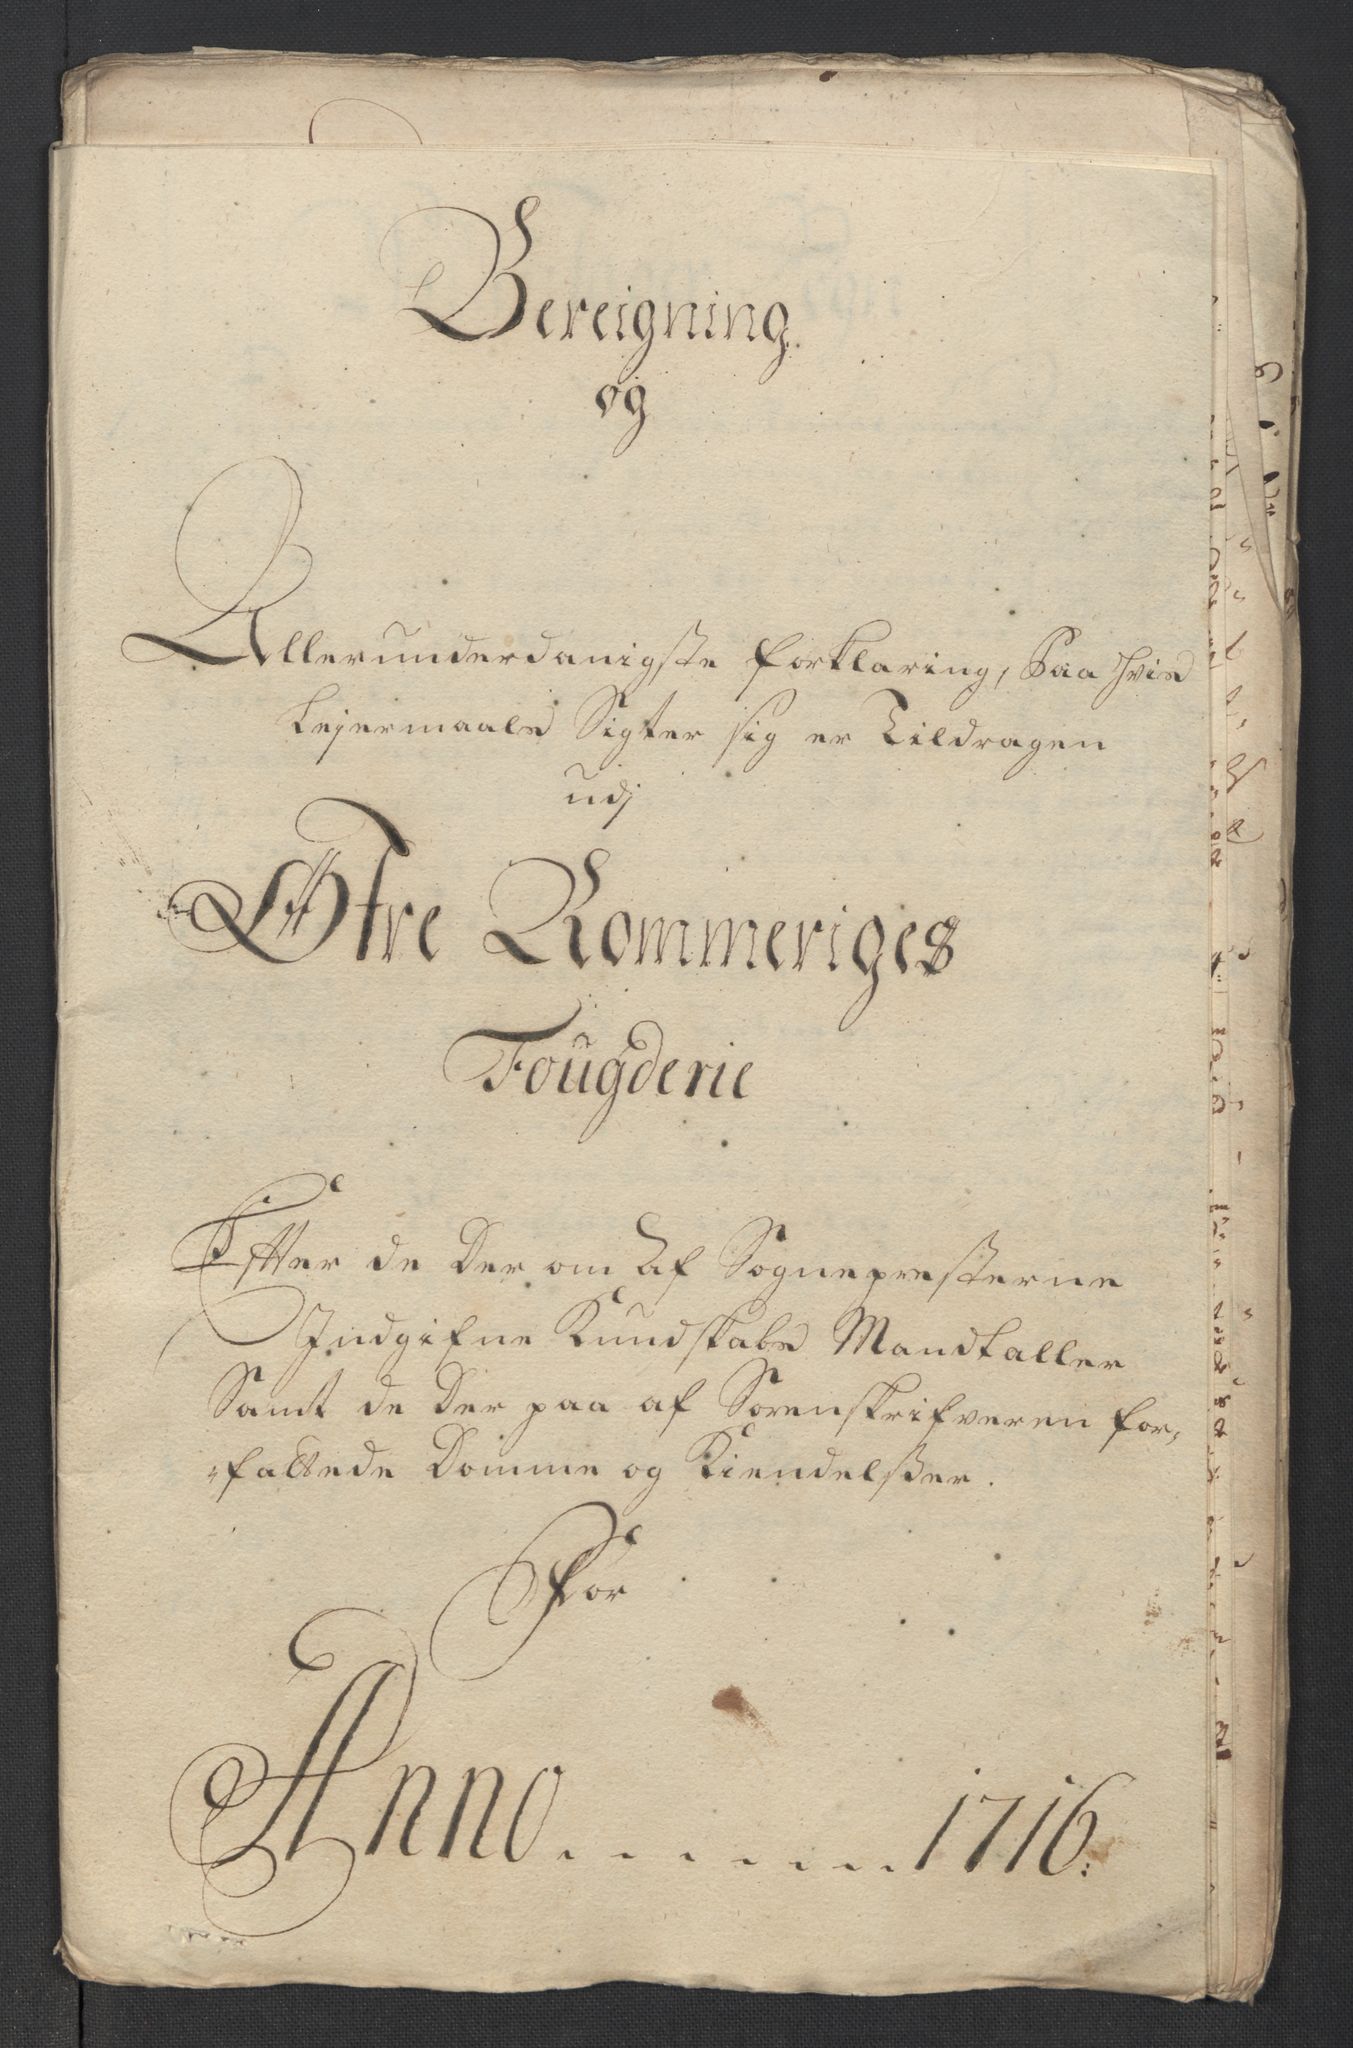 Bereigning
og
Allerunderdanigste forklaring, Paa hvis
Lejermaals Sigter sig er Tildragen
udj
Øfre Rommeriges
Fougderie
Efter de der om af Sognepresterne
Indgifne Kundskabs Mandtaller
Samt de der paa af Sorenskrifveren for-
-fattede Domme og Kiendelsser.
For
Anno . . . . . . . 1716: